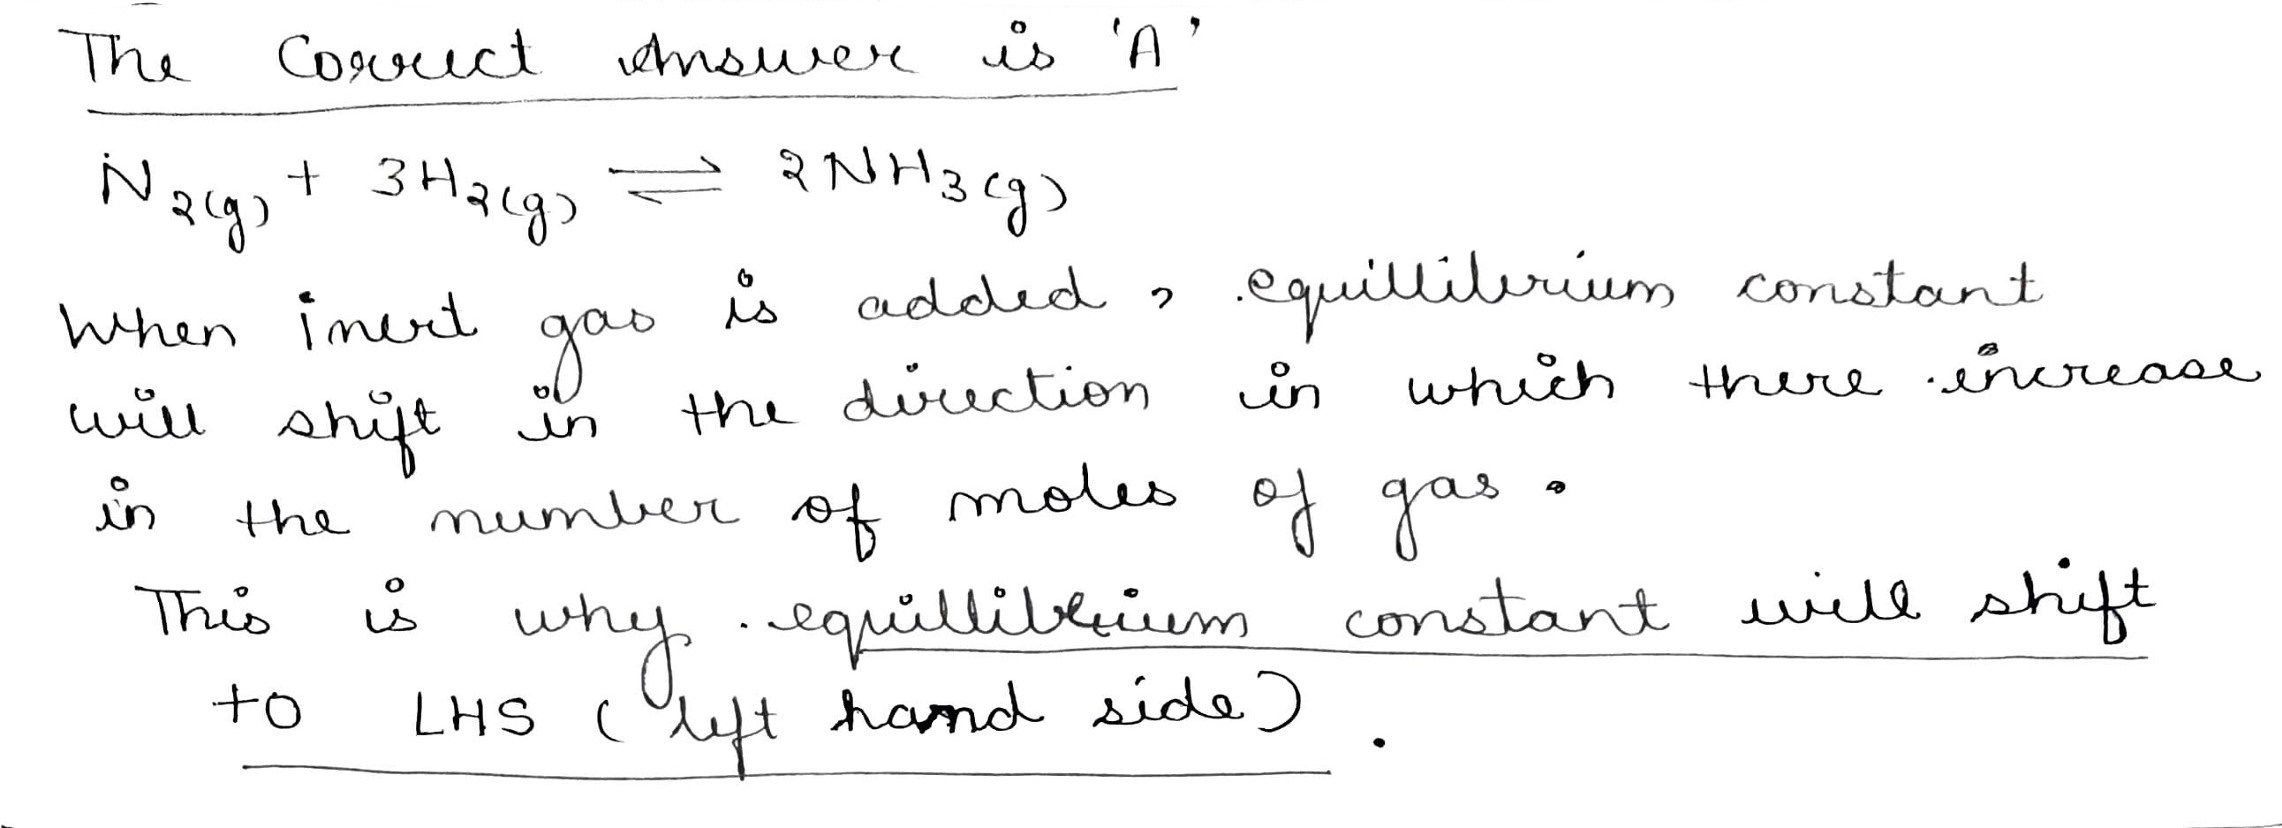 The Correct Answer is 'A'
N2(g) + 3H2(g) ⇌ 2NH3(g)
When inert gas is added, equillibrium constant
will shift in the direction in which there increase
in the number of moles of gas.
This is why equillibrium constant will shift
to LHS (left hand side).